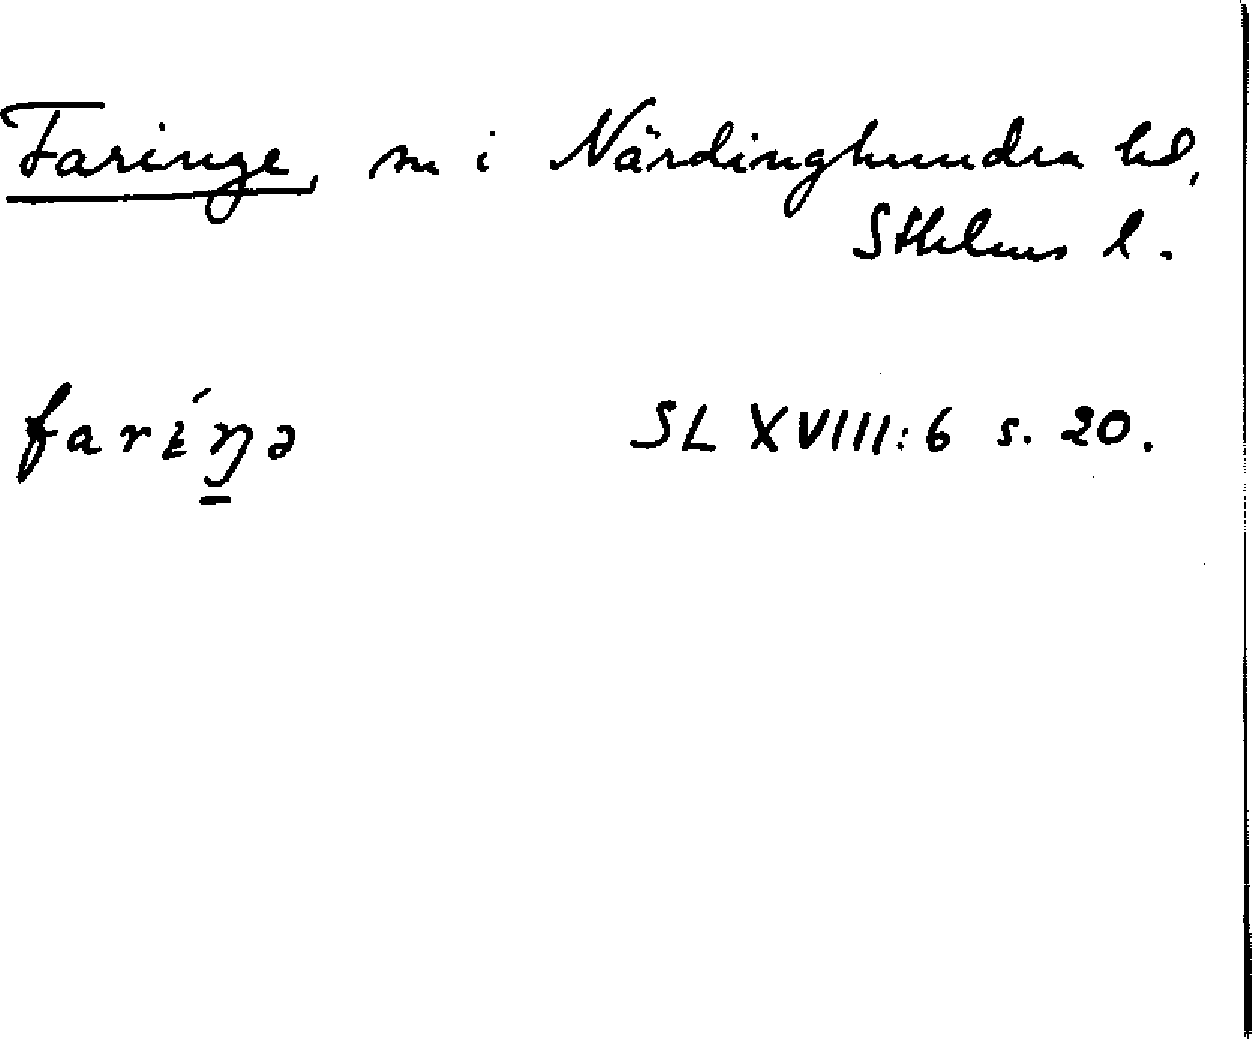 Faringe, sn i Närdinghundra hd,
Sthlms l.
farɩ́ŋ̱ə SL XVIII:6 s. 20.